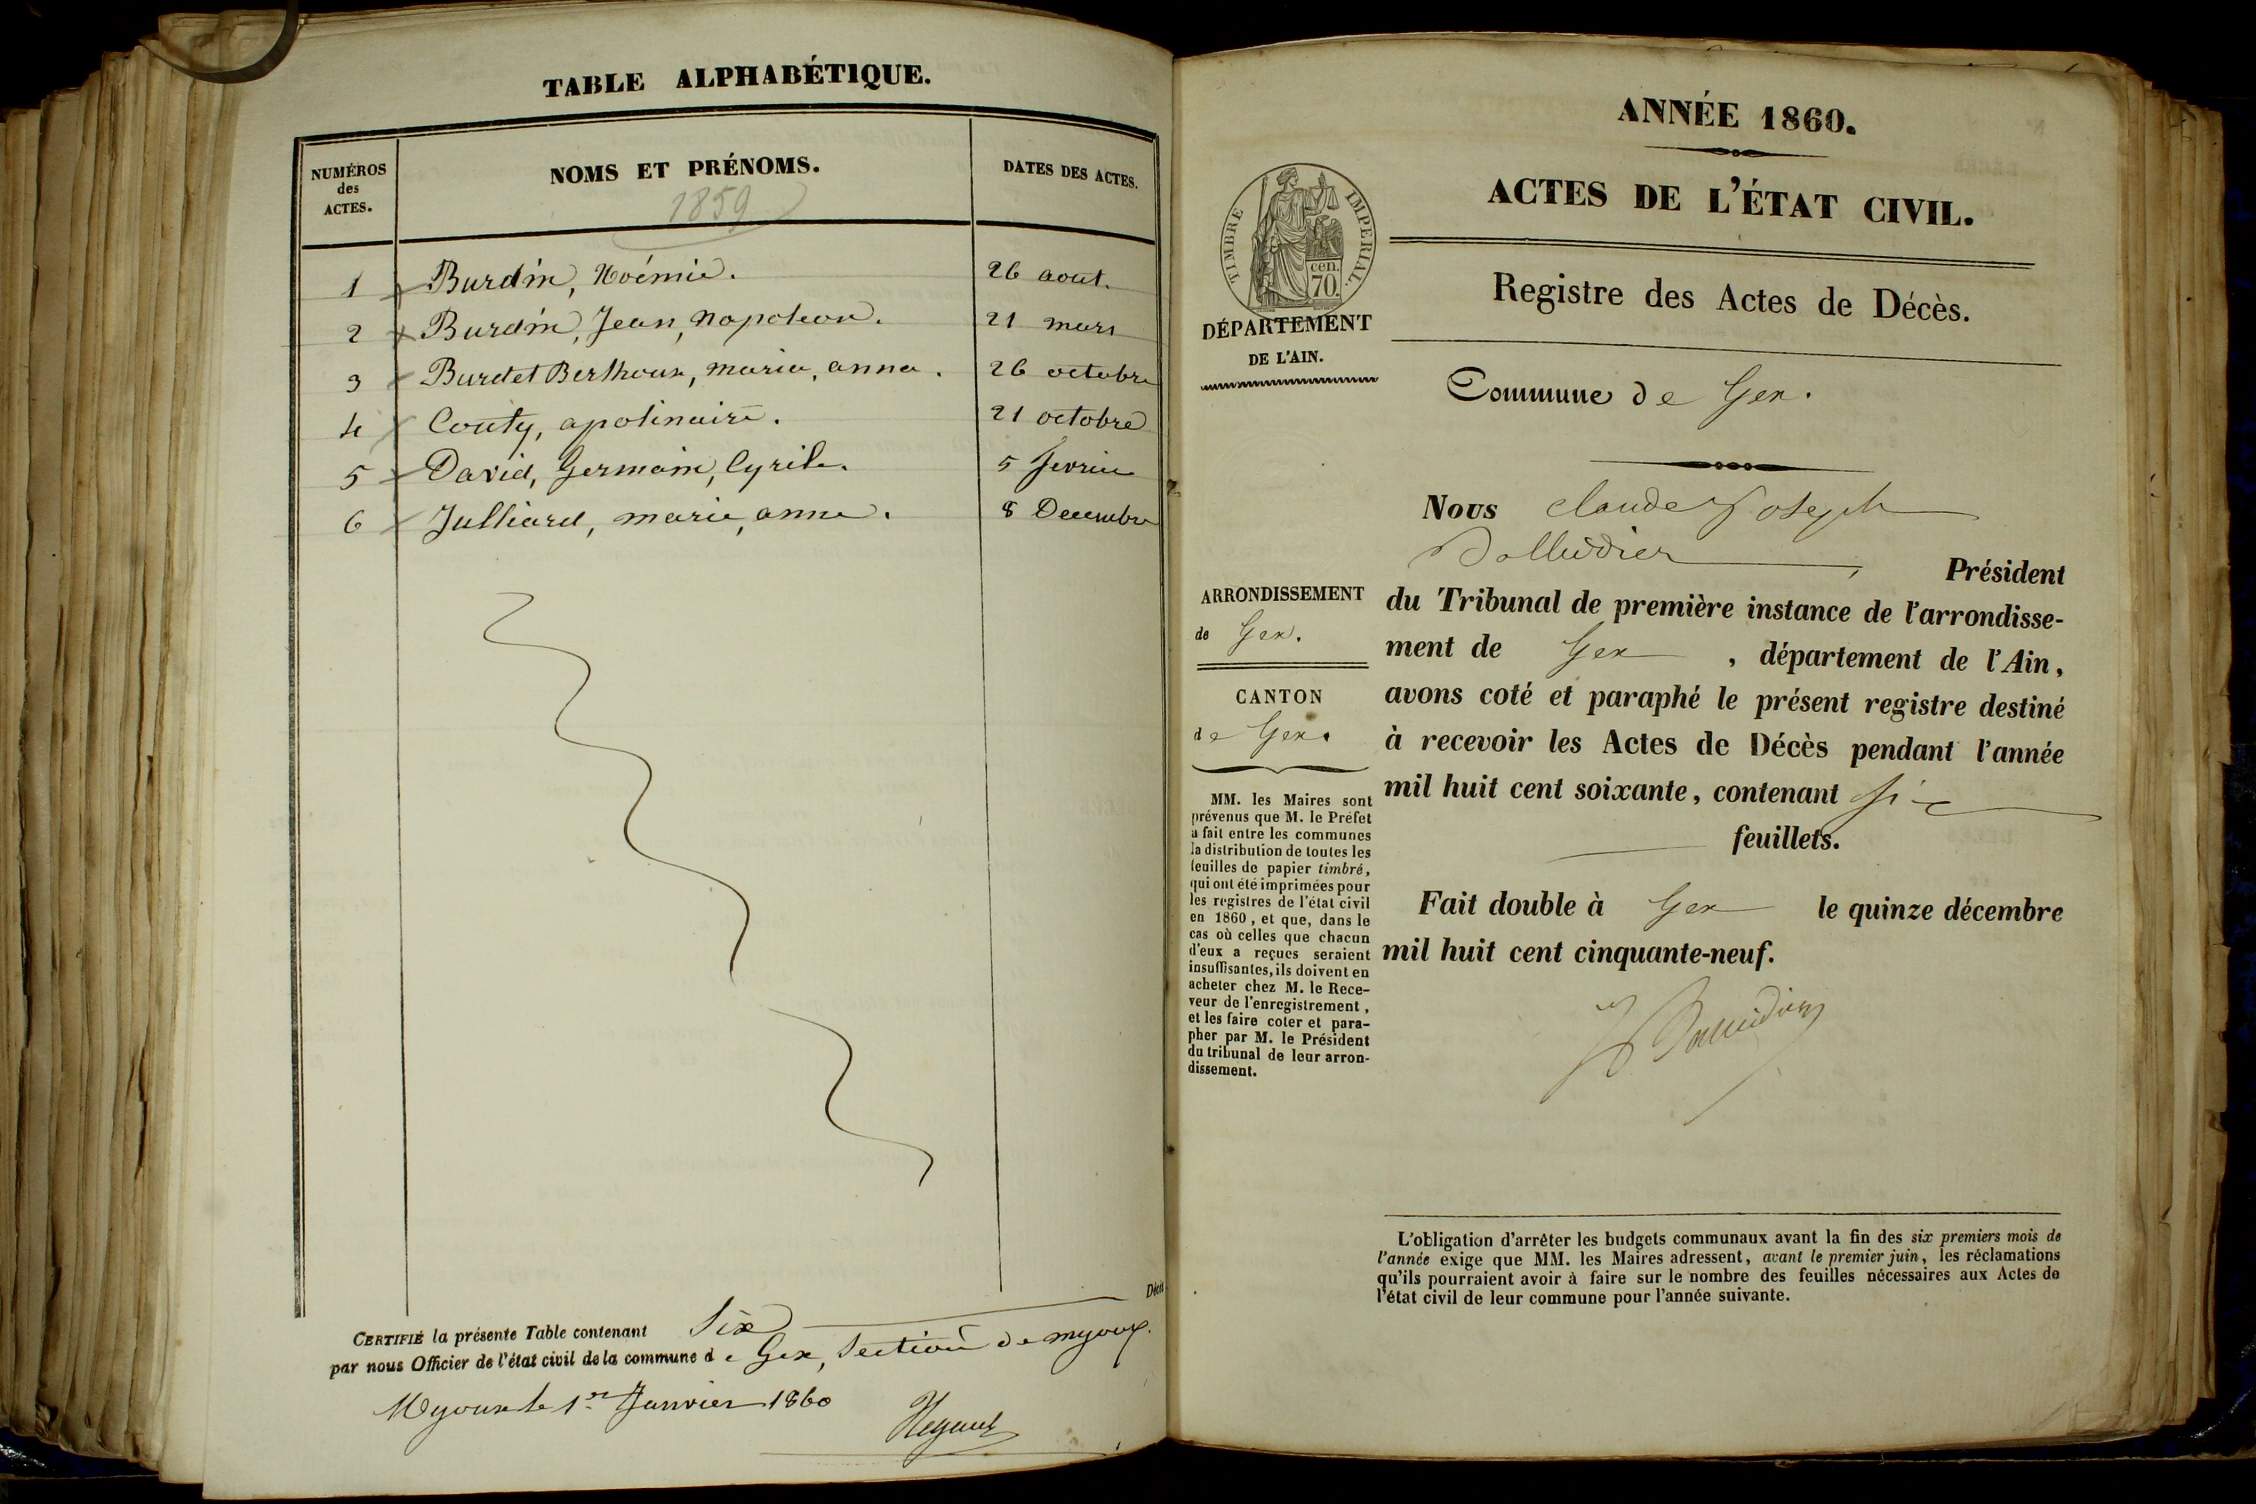 TABLE ALPHABÉTIQUE.
NUMÉROS
des
ACTES.
NOMS ET PRÉNOMS.
1859
DATES DES ACTES.
1 Burdin, Noémie. 26 aout.
2 Burdin, Jean, Napoleon. 21 mars
3 Burdet Berthoux, maria, anna. 26 octobre
4 Couty, apolinaire. 21 octobre
5 David, Germain, Cyrile. 5 fevrier
6 Julliard, marie, anne. 8 Decembre
CERTIFIÉ la présente Table contenant Six Décès
par nous Officier de l'état civil de la commune de Gex, Section de myoux.
Myoux le 1er Janvier 1860
ANNÉE 1860.
ACTES DE L'ÉTAT CIVIL.
Registre des Actes de Décès.
TIMBRE IMPERIAL.
cen.
70.
DÉPARTEMENT
DE L'AIN.
Commune de Gex.
Nous Claude Joseph
Président
du Tribunal de première instance de l'arrondisse-
ment de Gex, département de l'Ain,
avons coté et paraphé le présent registre destiné
à recevoir les Actes de Décès pendant l'année
mil huit cent soixante, contenant six
feuillets.
Fait double à Gex le quinze décembre
mil huit cent cinquante-neuf.
ARRONDISSEMENT
de Gex.
CANTON
de Gex.
MM. les Maires sont
prévenus que M. le Préfet
a fait entre les communes
la distribution de toutes les
feuilles de papier timbré,
qui ont été imprimées pour
les registres de l'état civil
en 1860, et que, dans le
cas où celles que chacun
d'eux a reçues seraient
insuffisantes, ils doivent en
acheter chez M. le Rece-
veur de l'enregistrement,
et les faire coter et para-
pher par M. le Président
du tribunal de leur arron-
dissement.
L'obligation d'arrêter les budgets communaux avant la fin des six premiers mois de
l'année exige que MM. les Maires adressent, avant le premier juin, les réclamations
qu'ils pourraient avoir à faire sur le nombre des feuilles nécessaires aux Actes de
l'état civil de leur commune pour l'année suivante.